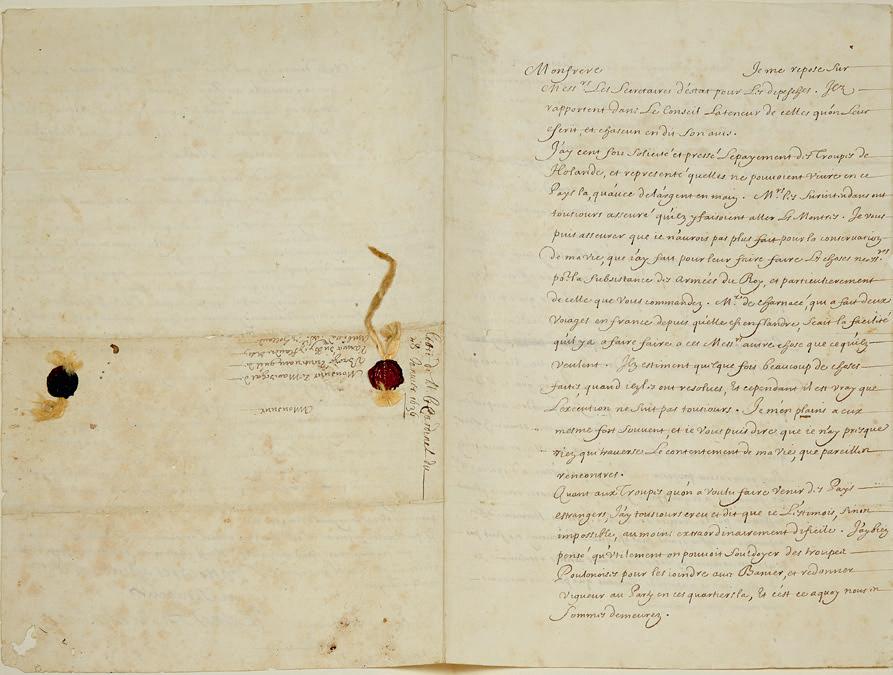 Monfrere Je me repose sur
Mess.rs Les Secretaires d'estat pour Les depesches. Ilz
rapportent dans Le Conseil La teneur de celles qu'on leur
escrit, et chascun en dit son avis.
J'ay cent fois solicité et pressé Le payement des Troupes de
Holande, et representé qu'elles ne pouvoient vivre en ce
Pays la, qu'avec de l'argent en main. M.rs les Surintendans ont
tousiours asseuré qu'ilz y faisoient aller Les Montres. Je vous
puis asseurer que ie n'aurois pas plus fait pour la conservation
de ma vie, que i'ay fait pour leur faire faire Les choses necess.res
po.r la subsistance des Armées du Roy, et particulierement
de celle que vous commandez. M.r de Charnacé, qui a fait deux
voiages en france depuis qu'elle est en flandre, scait la facilité
qu'il y a à faire faire a ces Mess.rs autre chose que ce qu'ilz
veulent. Ilz estiment quelque fois beaucoup de choses
faites, quand ilz les ont resolues, Et cependant il est vray que
L'execution ne suit pas tousiours. Je m'en plains a eux
mesme fort souvent, et ie vous puis dire que ie n'ay presque
rien qui traverse Le contentement de ma vie, que pareilles
rencontres.
Quant aux Troupes qu'on a voulu faire venir des Pays
estrangers, J'ay tousiours creu et dit que ie L'estimois, sinon
impossible, au moins extraordinairement dificile. J'ay bien
pensé qu'utilement on pouvoit soudoyer des troupes
Poulonoises pour les ioindre aux Banier, et redonner
vigueur au Party en ces quartiers la, Et c'est ce a quoy nous en
sommes demeurez.
de M. le Cardinal du
Janvier 1636
Monsieur
Monsieur le